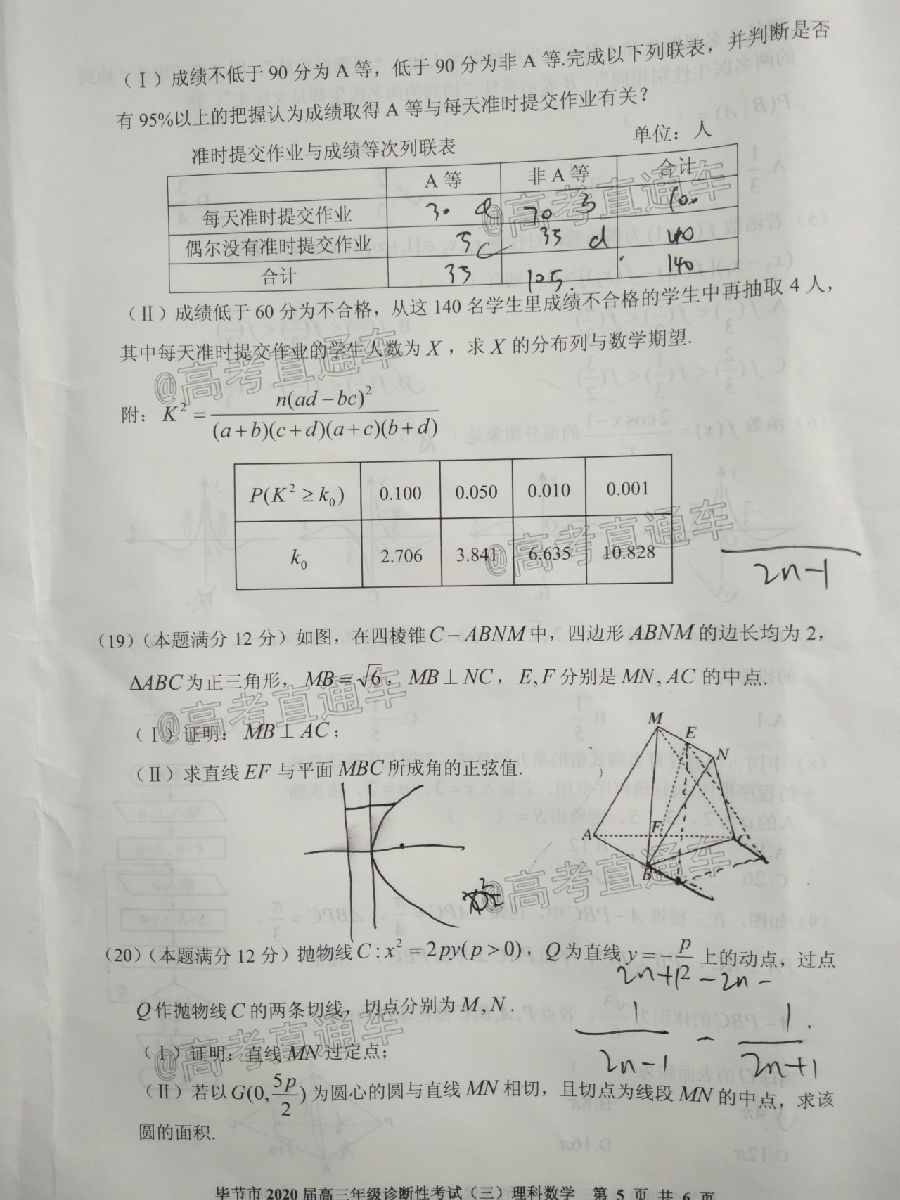 (Ⅰ)成绩不低于90分为A等，低于90分为非A等.完成以下列联表，并判断是否
有95%以上的把握认为成绩取得A等与每天准时提交作业有关?
准时提交作业与成绩等次列联表 单位：人
A等 非A等 合计
每天准时提交作业 30 a 70 b 100
偶尔没有准时提交作业 5 c 35 d 40
合计 35 105 140
(Ⅱ)成绩低于60分为不合格，从这140名学生里成绩不合格的学生中再抽取4人，
其中每天准时提交作业的学生人数为X，求X的分布列与数学期望.
附：K² = n(ad−bc)² / (a+b)(c+d)(a+c)(b+d)
P(K² ≥ k₀) 0.100 0.050 0.010 0.001
k₀ 2.706 3.841 6.635 10.828
2n-1
(19)(本题满分12分)如图，在四棱锥C−ABNM中，四边形ABNM的边长均为2，
ΔABC为正三角形，MB=√6，MB⊥NC，E,F分别是MN,AC的中点.
(Ⅰ)证明：MB⊥AC；
(Ⅱ)求直线EF与平面MBC所成角的正弦值.
M
E
N
A
F
C
B
(20)(本题满分12分)抛物线C:x²=2py(p>0)，Q为直线y=−p/2上的动点，过点
Q作抛物线C的两条切线，切点分别为M,N.
(Ⅰ)证明：直线MN过定点；
1/2n-1 - 1/2n+1
(Ⅱ)若以G(0,5p/2)为圆心的圆与直线MN相切，且切点为线段MN的中点，求该
圆的面积.
毕节市2020届高三年级诊断性考试（三）理科数学 第5页 共6页
@高考直通车
@高考直通车
@高考直通车
@高考直通车
@高考直通车
@高考直通车